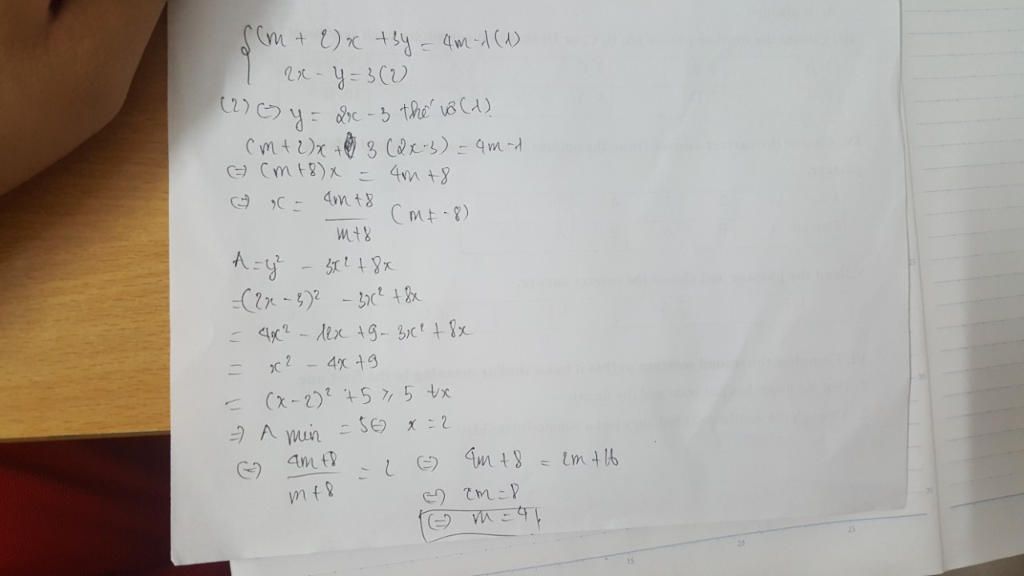 {(m + 2)x + 3y = 4m-1(1)
2x - y = 3(2)
(2) ⇔ y = 2x - 3 thế vô (1).
(m+2)x + 3(2x-3) = 4m-1
⇔ (m+8)x = 4m+8
⇔ x = (4m+8)/(m+8) (m ≠ -8)
A = y² - 3x² + 8x
= (2x - 3)² - 3x² + 8x
= 4x² - 12x + 9 - 3x² + 8x
= x² - 4x + 9
= (x-2)² + 5 ≥ 5 ∀x
⇒ A min = 5 ⇔ x = 2
⇔ (4m+8)/(m+8) = 2 ⇔ 4m + 8 = 2m + 16
⇔ 2m = 8
⇔ m = 4